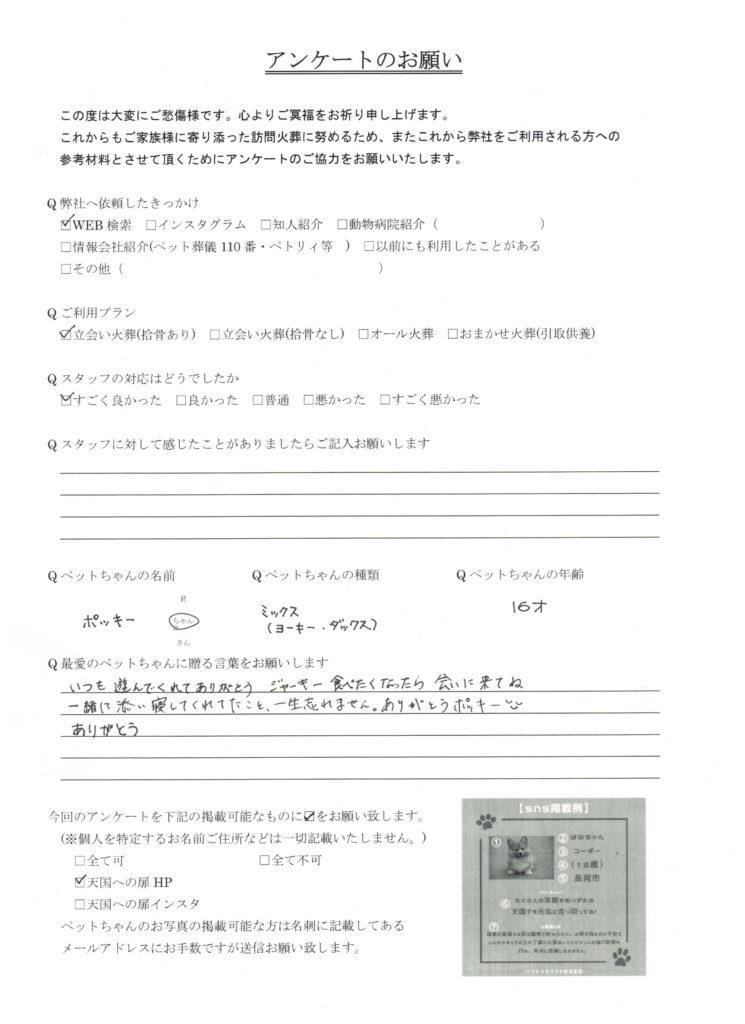 アンケートのお願い
この度は大変にご愁傷様です。心よりご冥福をお祈り申し上げます。
これからもご家族様に寄り添った訪問火葬に努めるため、またこれから弊社をご利用される方への
参考材料とさせて頂くためにアンケートのご協力をお願いいたします。
Q 弊社へ依頼したきっかけ
☑WEB 検索 □インスタグラム □知人紹介 □動物病院紹介 ( )
□情報会社紹介(ペット葬儀 110 番・ペトリィ等 ) □以前にも利用したことがある
□その他 ( )
Q ご利用プラン
☑立会い火葬(拾骨あり) □立会い火葬(拾骨なし) □オール火葬 □おまかせ火葬(引取供養)
Q スタッフの対応はどうでしたか
☑すごく良かった □良かった □普通 □悪かった □すごく悪かった
Q スタッフに対して感じたことがありましたらご記入お願いします
Q ペットちゃんの名前 Q ペットちゃんの種類 Q ペットちゃんの年齢
君
ポッキー ちゃん
さん
ミックス
(ヨーキー・ダックス)
16才
Q 最愛のペットちゃんに贈る言葉をお願いします
いつも 遊んでくれてありがとう ジャーキー 食べたくなったら 会いに来てね
一緒に添い寝してくれてたこと、一生忘れません。ありがとうポッキー
ありがとう
今回のアンケートを下記の掲載可能なものに☑をお願い致します。
(※個人を特定するお名前ご住所などは一切記載いたしません。)
□全て可 □全て不可
☑天国への扉 HP
□天国への扉インスタ
ペットちゃんのお写真の掲載可能な方は名刺に記載してある
メールアドレスにお手数ですが送信お願い致します。
【sns掲載例】
①
② はなちゃん
③ コーギー
④ (12歳)
⑤ 長岡市
⑥ たくさんの笑顔をありがとう
天国でも元気に走り回ってね!
⑦